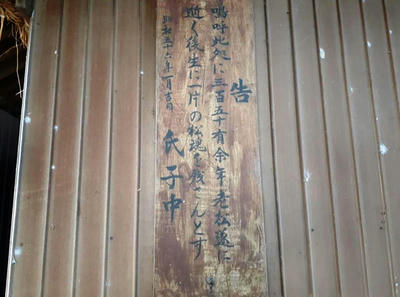 告
嗚呼此処に三百五十有余年老松遂に
逝く後生に一片の松魂を残さんとす
昭和五十六年一月吉日
氏子中